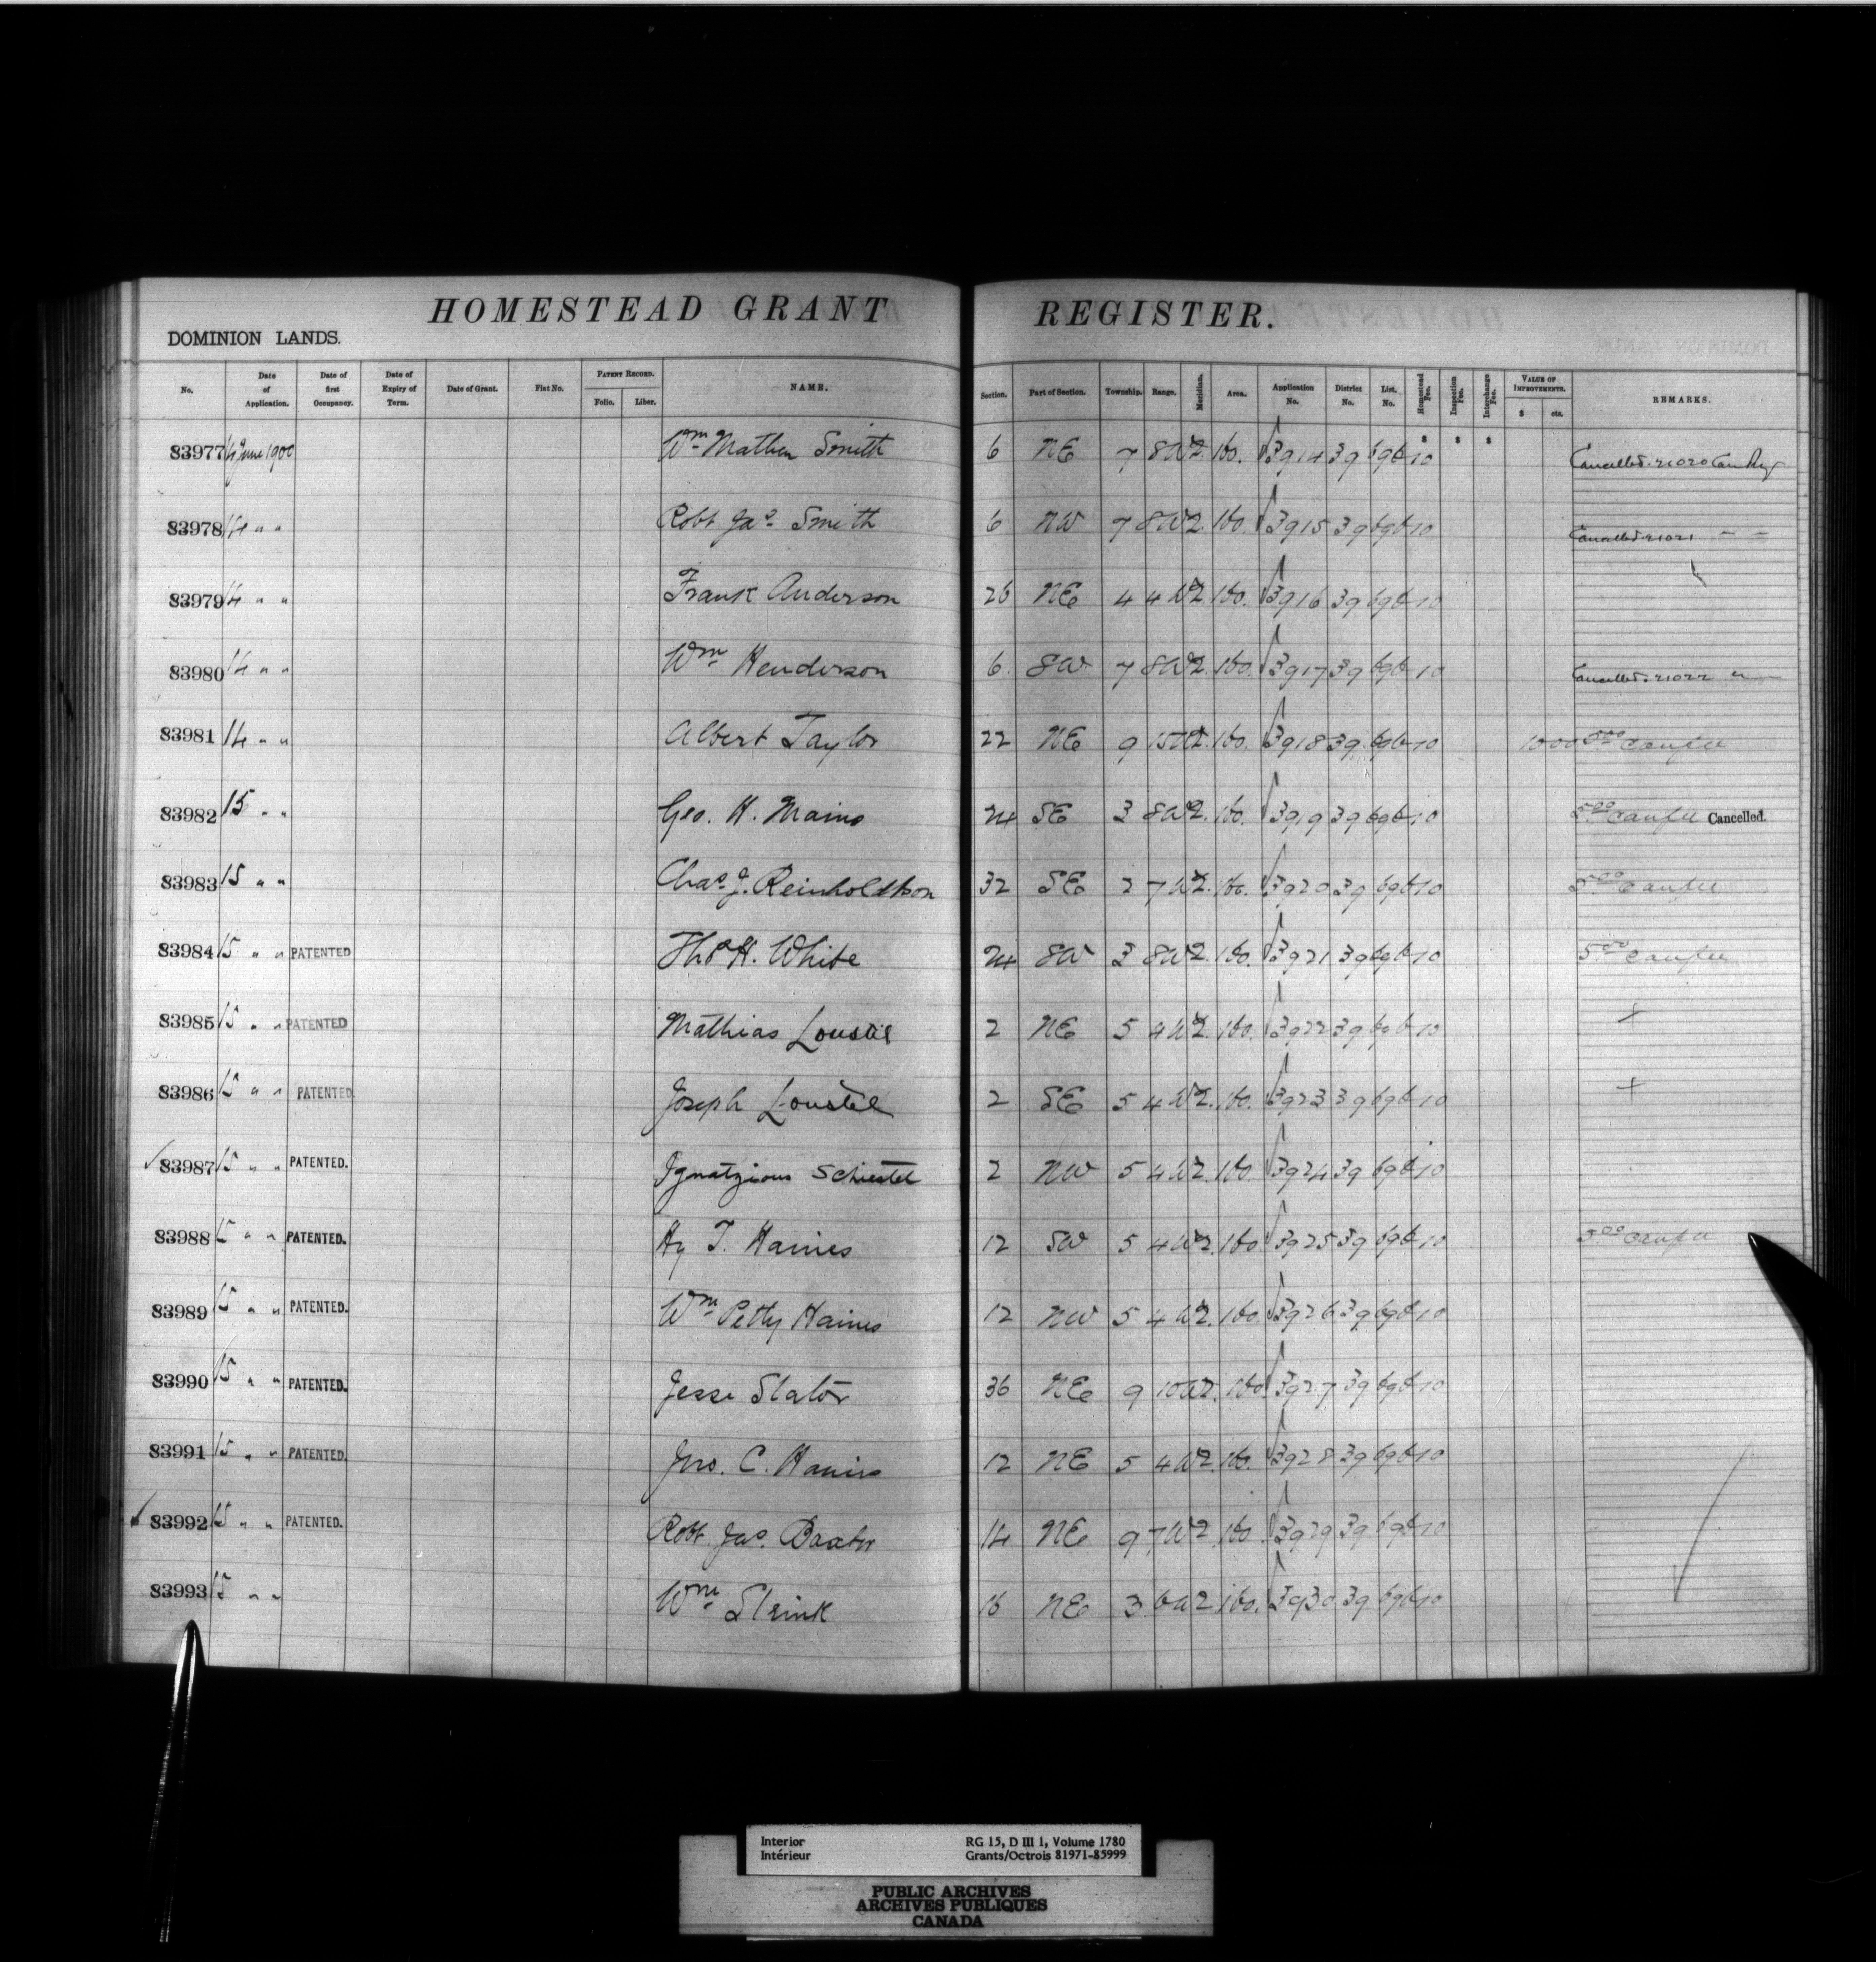 HOMESTEAD GRANT REGISTER.
DOMINION LANDS.
No. Date of Application. Date of first Occupancy. Date of Expiry of Term. Date of Grant. Fiat No. PATENT RECORD. Folio. Liber. NAME. Section. Part of Section. Township. Range. Meridian. Area. Application No. District No. List. No. Homestead Fee. Inspection Fee. Interchange Fee. VALUE OF IMPROVEMENTS. $ cts. REMARKS.
83977 14 June 1900 Wm Mathew Smith 6 NE 7 8 W2. 160. 3914 39 696 10 Cancelled. 21020 Can Reg
83978 14 " " Robt Jas Smith 6 NW 7 8 W2. 160. 3915 39 696 10 Cancelled. 21021 " "
83979 14 " " Frank Anderson 26 NE 4 4 W2. 160. 3916 39 696 10
83980 14 " " Wm Henderson 6 SW 7 8 W2. 160. 3917 39 696 10 Cancelled. 21022 "
83981 14 " " Albert Taylor 22 NE 9 15 W2. 160. 3918 39 696 10 1000 5.00 canfee
83982 15 " " Geo. H. Mains 24 SE 3 8 W2. 160. 3919 39 696 10 5.00 canfee Cancelled.
83983 15 " " Chas. J. Reinholdtson 32 SE 2 7 W2. 160. 3920 39 696 10 5.00 canfee
83984 15 " " PATENTED Thos H. White 24 SW 3 8 W2. 160. 3921 39 696 10 5.00 canfee
83985 15 " " PATENTED Mathias 2 NE 5 4 W2. 160. 3922 39 696 10 +
83986 15 " " PATENTED Joseph 2 SE 5 4 W2. 160. 3923 39 696 10 +
83987 15 " " PATENTED. Ignatzious Schiestel 2 NW 5 4 W2. 160. 3924 39 696 10
83988 15 " " PATENTED. Hy T. Haines 12 SW 5 4 W2. 160 3925 39 696 10 5.00 canfee
83989 15 " " PATENTED. Wm Petty Haines 12 NW 5 4 W2. 160. 3926 39 696 10
83990 15 " " PATENTED. Jesse Slator 36 NE 9 10 W2. 160 3927 39 696 10
83991 15 " " PATENTED. Jno. C. Haines 12 NE 5 4 W2. 160. 3928 39 696 10
83992 15 " " PATENTED. Robt Jas. Baxter 14 NE 9 7 W2 160. 3929 39 696 10
83993 15 " " Wm 16 NE 3 6 W2 160. 3930 39 696 10
Interior RG 15, D III 1, Volume 1780
Intérieur Grants/Octrois 81971-85999
PUBLIC ARCHIVES
ARCHIVES PUBLIQUES
CANADA